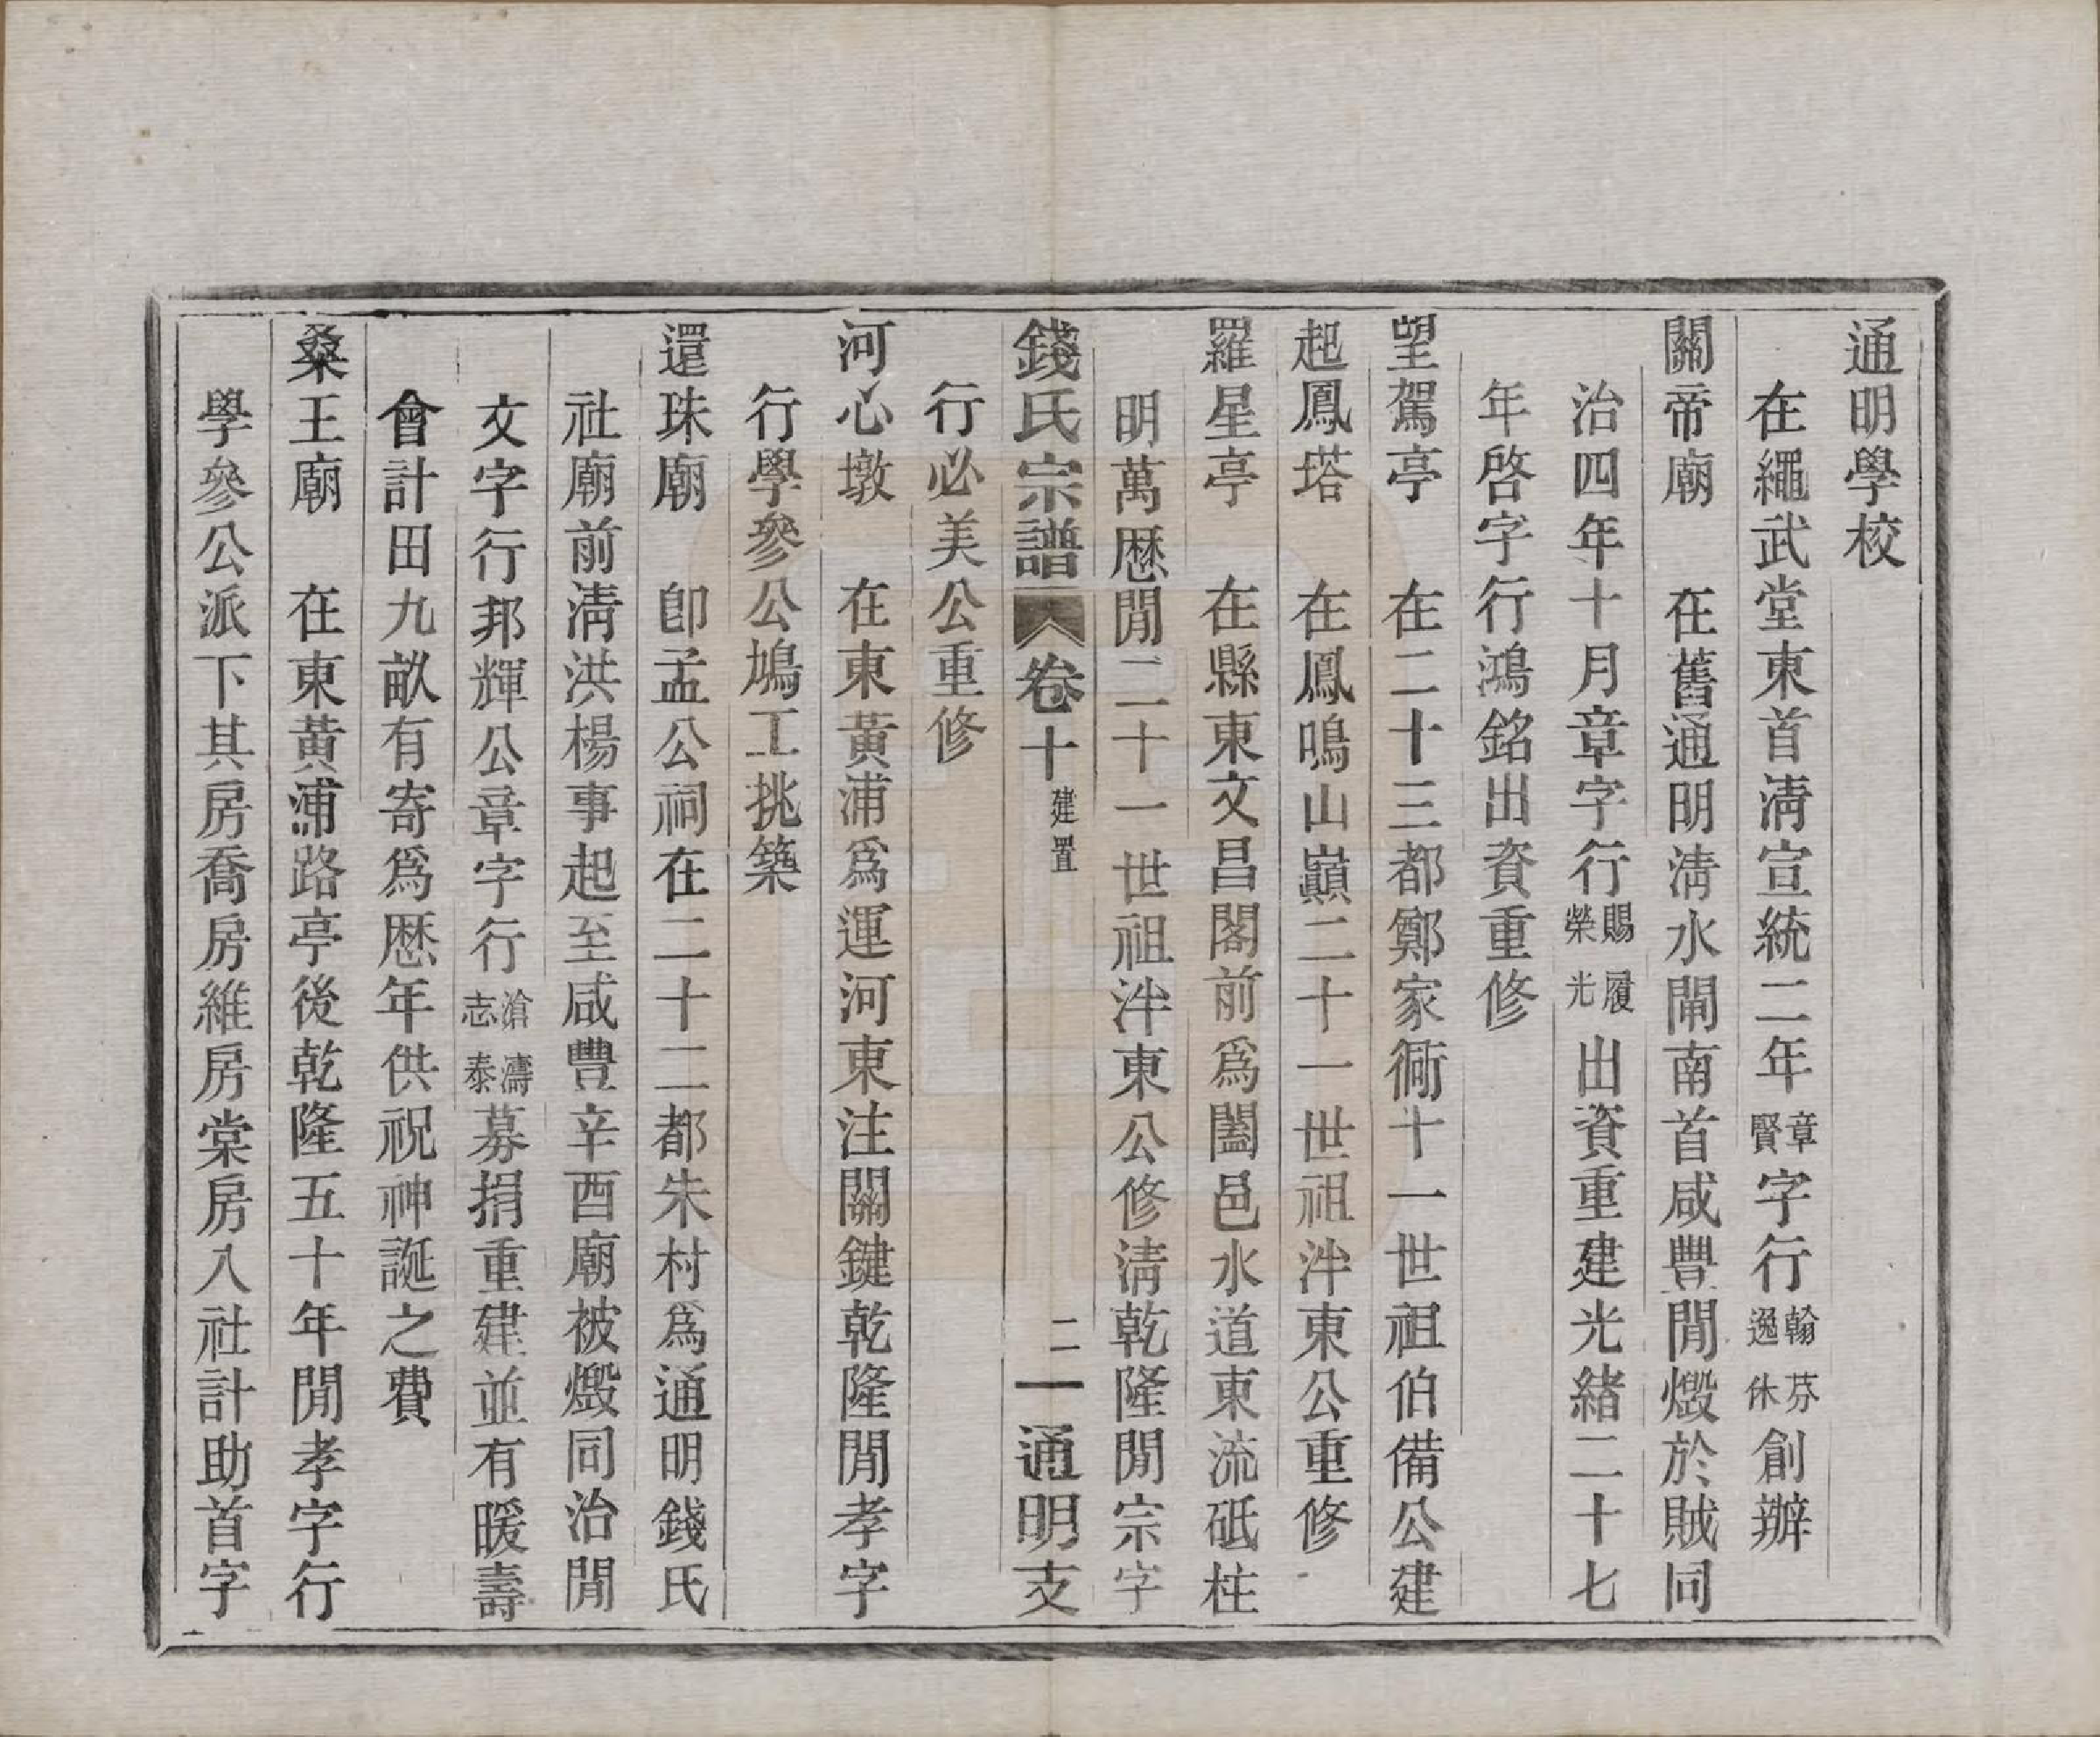 通明學校
在繩武堂東首淸宣統二年章賢字行翰逸芬休創辦
關帝廟　在舊通明淸水閘南首咸豐閒燬於賊同
治四年十月章字行賜榮履光出資重建光緒二十七
年啓字行鴻銘出資重修
望駕亭　在二十三都鄭家衖十一世祖伯備公建
起鳳塔　在鳳鳴山巔二十一世祖泮東公重修
羅星亭　在縣東文昌閣前爲闔邑水道東流砥柱
明萬厯閒二十一世祖泮東公修淸乾隆閒宗字
行必美公重修
錢氏宗譜　卷十　建置　二　通明支
河心墩　在東黃浦爲運河東注關鍵乾隆閒孝字
行學參公鳩工挑築
還珠廟　卽孟公祠在二十二都朱村爲通明錢氏
社廟前淸洪楊事起至咸豐辛酉廟被燬同治閒
文字行邦輝公章字行滄志濤泰募捐重建並有暖壽
會計田九畝有寄爲厯年供祝神誕之費
桑王廟　在東黃浦路亭後乾隆五十年閒孝字行
學參公派下其房喬房維房棠房入社計助首字